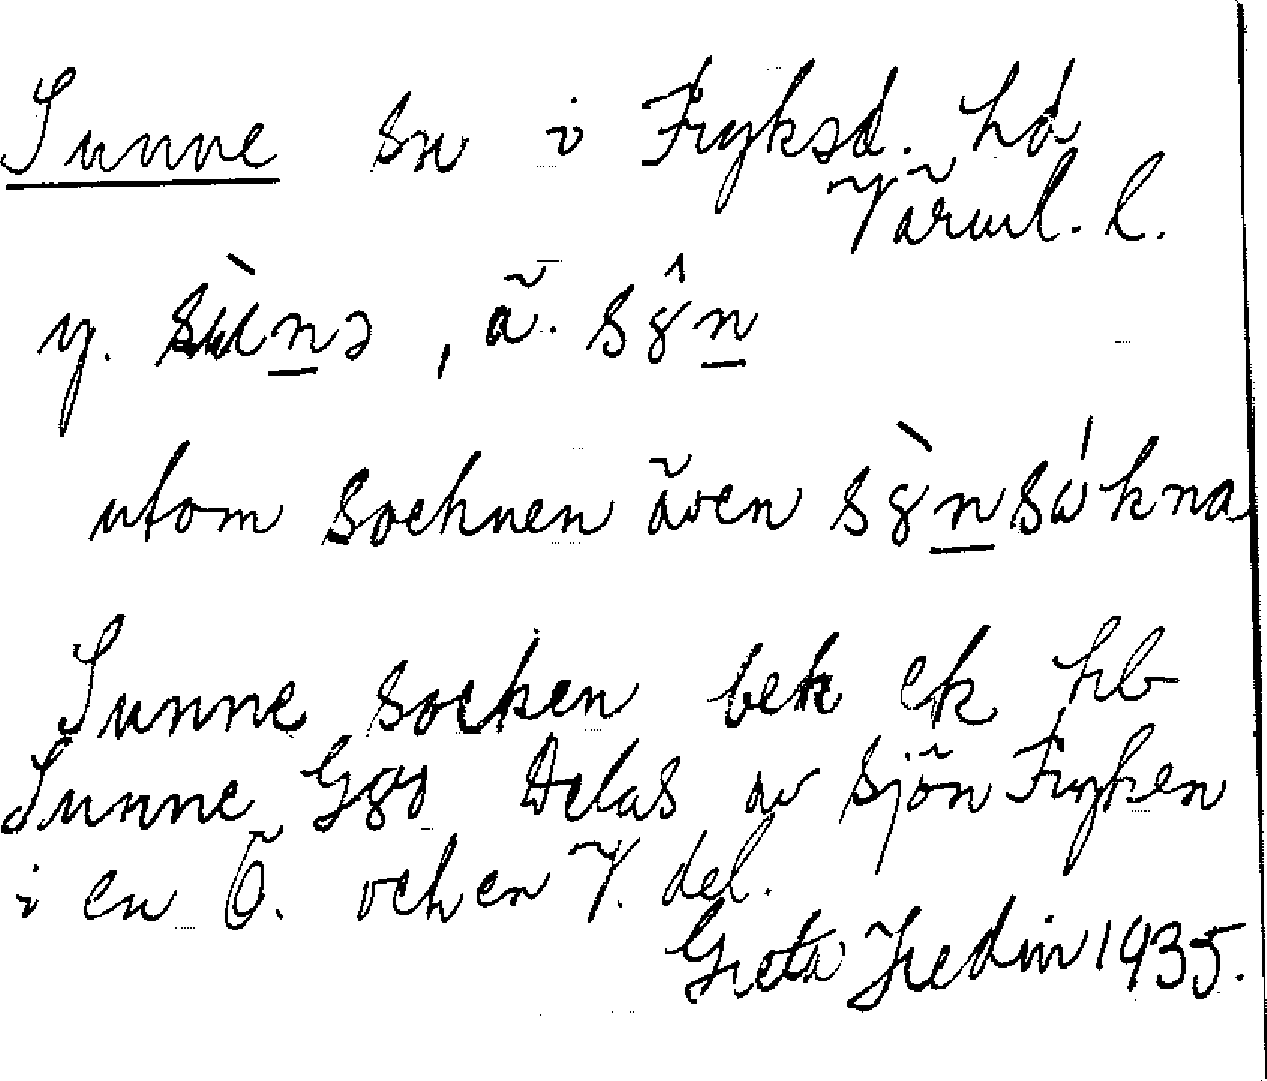 Sunne sn i Fryksd. hd
Värml. l.
y. sùnə, ä. sŷn
utom socknen även sỳnsókna
Sunne socken bek ek hb
Sunne Ggd Delas av sjön Fryken
i en Ö. och en V. del.
Greta Hedin 1935.